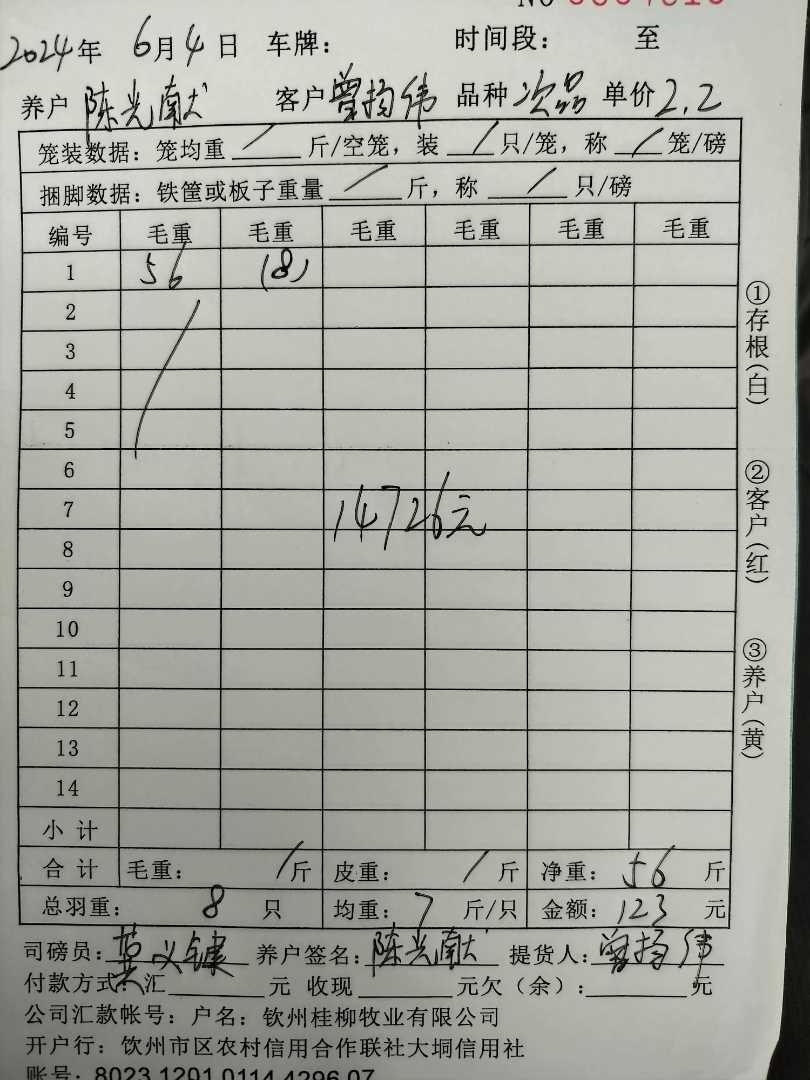 2024年 6月4日 车牌： 时间段： 至
养户 陈光献 客户 曾扬伟 品种 次品 单价 2.2
笼装数据：笼均重 / 斤/空笼，装 / 只/笼，称 / 笼/磅
捆脚数据：铁筐或板子重量 / 斤，称 / 只/磅
编号 毛重 毛重 毛重 毛重 毛重 毛重
1 56 (8)
2
3
4
5
6
7 14726元
8
9
10
11
12
13
14
小计
合计 毛重： / 斤 皮重： / 斤 净重： 56 斤
总羽重： 8 只 均重： 7 斤/只 金额： 123 元
司磅员： 养户签名：陈光献 提货人：曾扬伟
付款方式：汇 元 收现 元欠（余）： 元
公司汇款帐号：户名：钦州桂柳牧业有限公司
开户行：钦州市区农村信用合作联社大垌信用社
账号：8023 1201 0114 4296 07
①存根（白） ②客户（红） ③养户（黄）